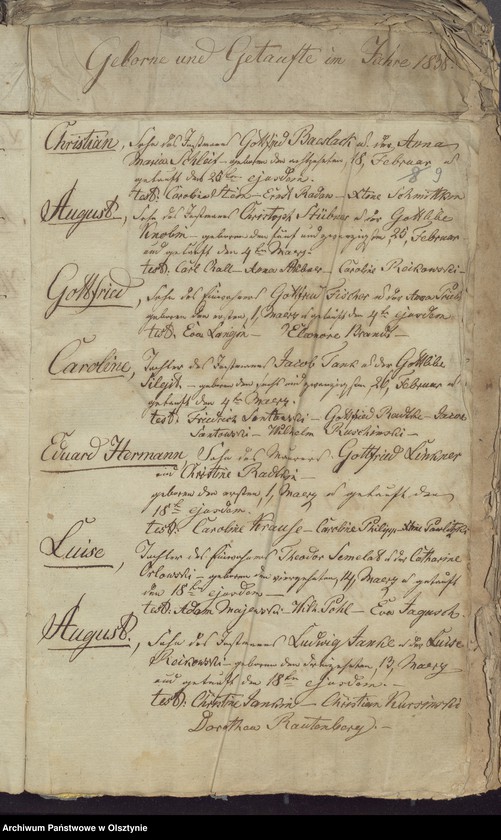 Geborne und Getaufte im Jahre 1838.
Christian, Sohn des Instmanns Gottfried Baeslack u. der Anna
Maria Schleif – geboren den achtzehnten, 18, Februar u
getauft den 25ten ejusdem.
8 9
test: Caroline Stein – Ernst Radau – Xtine Schmittken
August, Sohn des Instmanns Christoph Stüber u der Gottliebe
Knobln – geboren den fünf und zwanzigsten, 25, Februar
und getauft den 4ten Maerz.
test: Carl Rall – Anna – Caroline Reikowski –
Gottfried, Sohn des Einwohners Gottfried Fischer u der Anna
geboren den ersten, 1, Maerz u getauft den 4ten ejusdem
test: Eva Langin – Eleonore Brandt –
Caroline, Tochter des Instmanns Jacob Tank u der Gottliebe
– geboren den sechs und zwanzigsten, 26, Februar u
getauft den 4ten Maerz.
test: Friedrich Santowski – Gottfried Radtke – Jacob
Santowski – Wilhelm Ruschinski –
Eduard Hermann, Sohn des Maurers Gottfried Linkner
und Christine Radtkin –
geboren den ersten, 1, Maerz u getauft den
18ten ejusdem.
test: Caroline Krause – Caroline Philipp – Xtine
Luise, Tochter des Einwohners Theodor Semelat u der Catharine
Orlowski – geboren den vierzehnten, 14, Maerz u getauft
den 18ten ejusdem –
test: Adam Majewski – Wilh. Pohl – Eva Jagusch.
August, Sohn des Instmanns Ludwig Janke u der Luise
Reikowski – geboren den dreizehnten, 13, Maerz
und getauft den 18ten ejusdem. –
test: Christine Jankin – Christian Kursinski
Dorothea Rautenberg. –
Archiwum Państwowe w Olsztynie